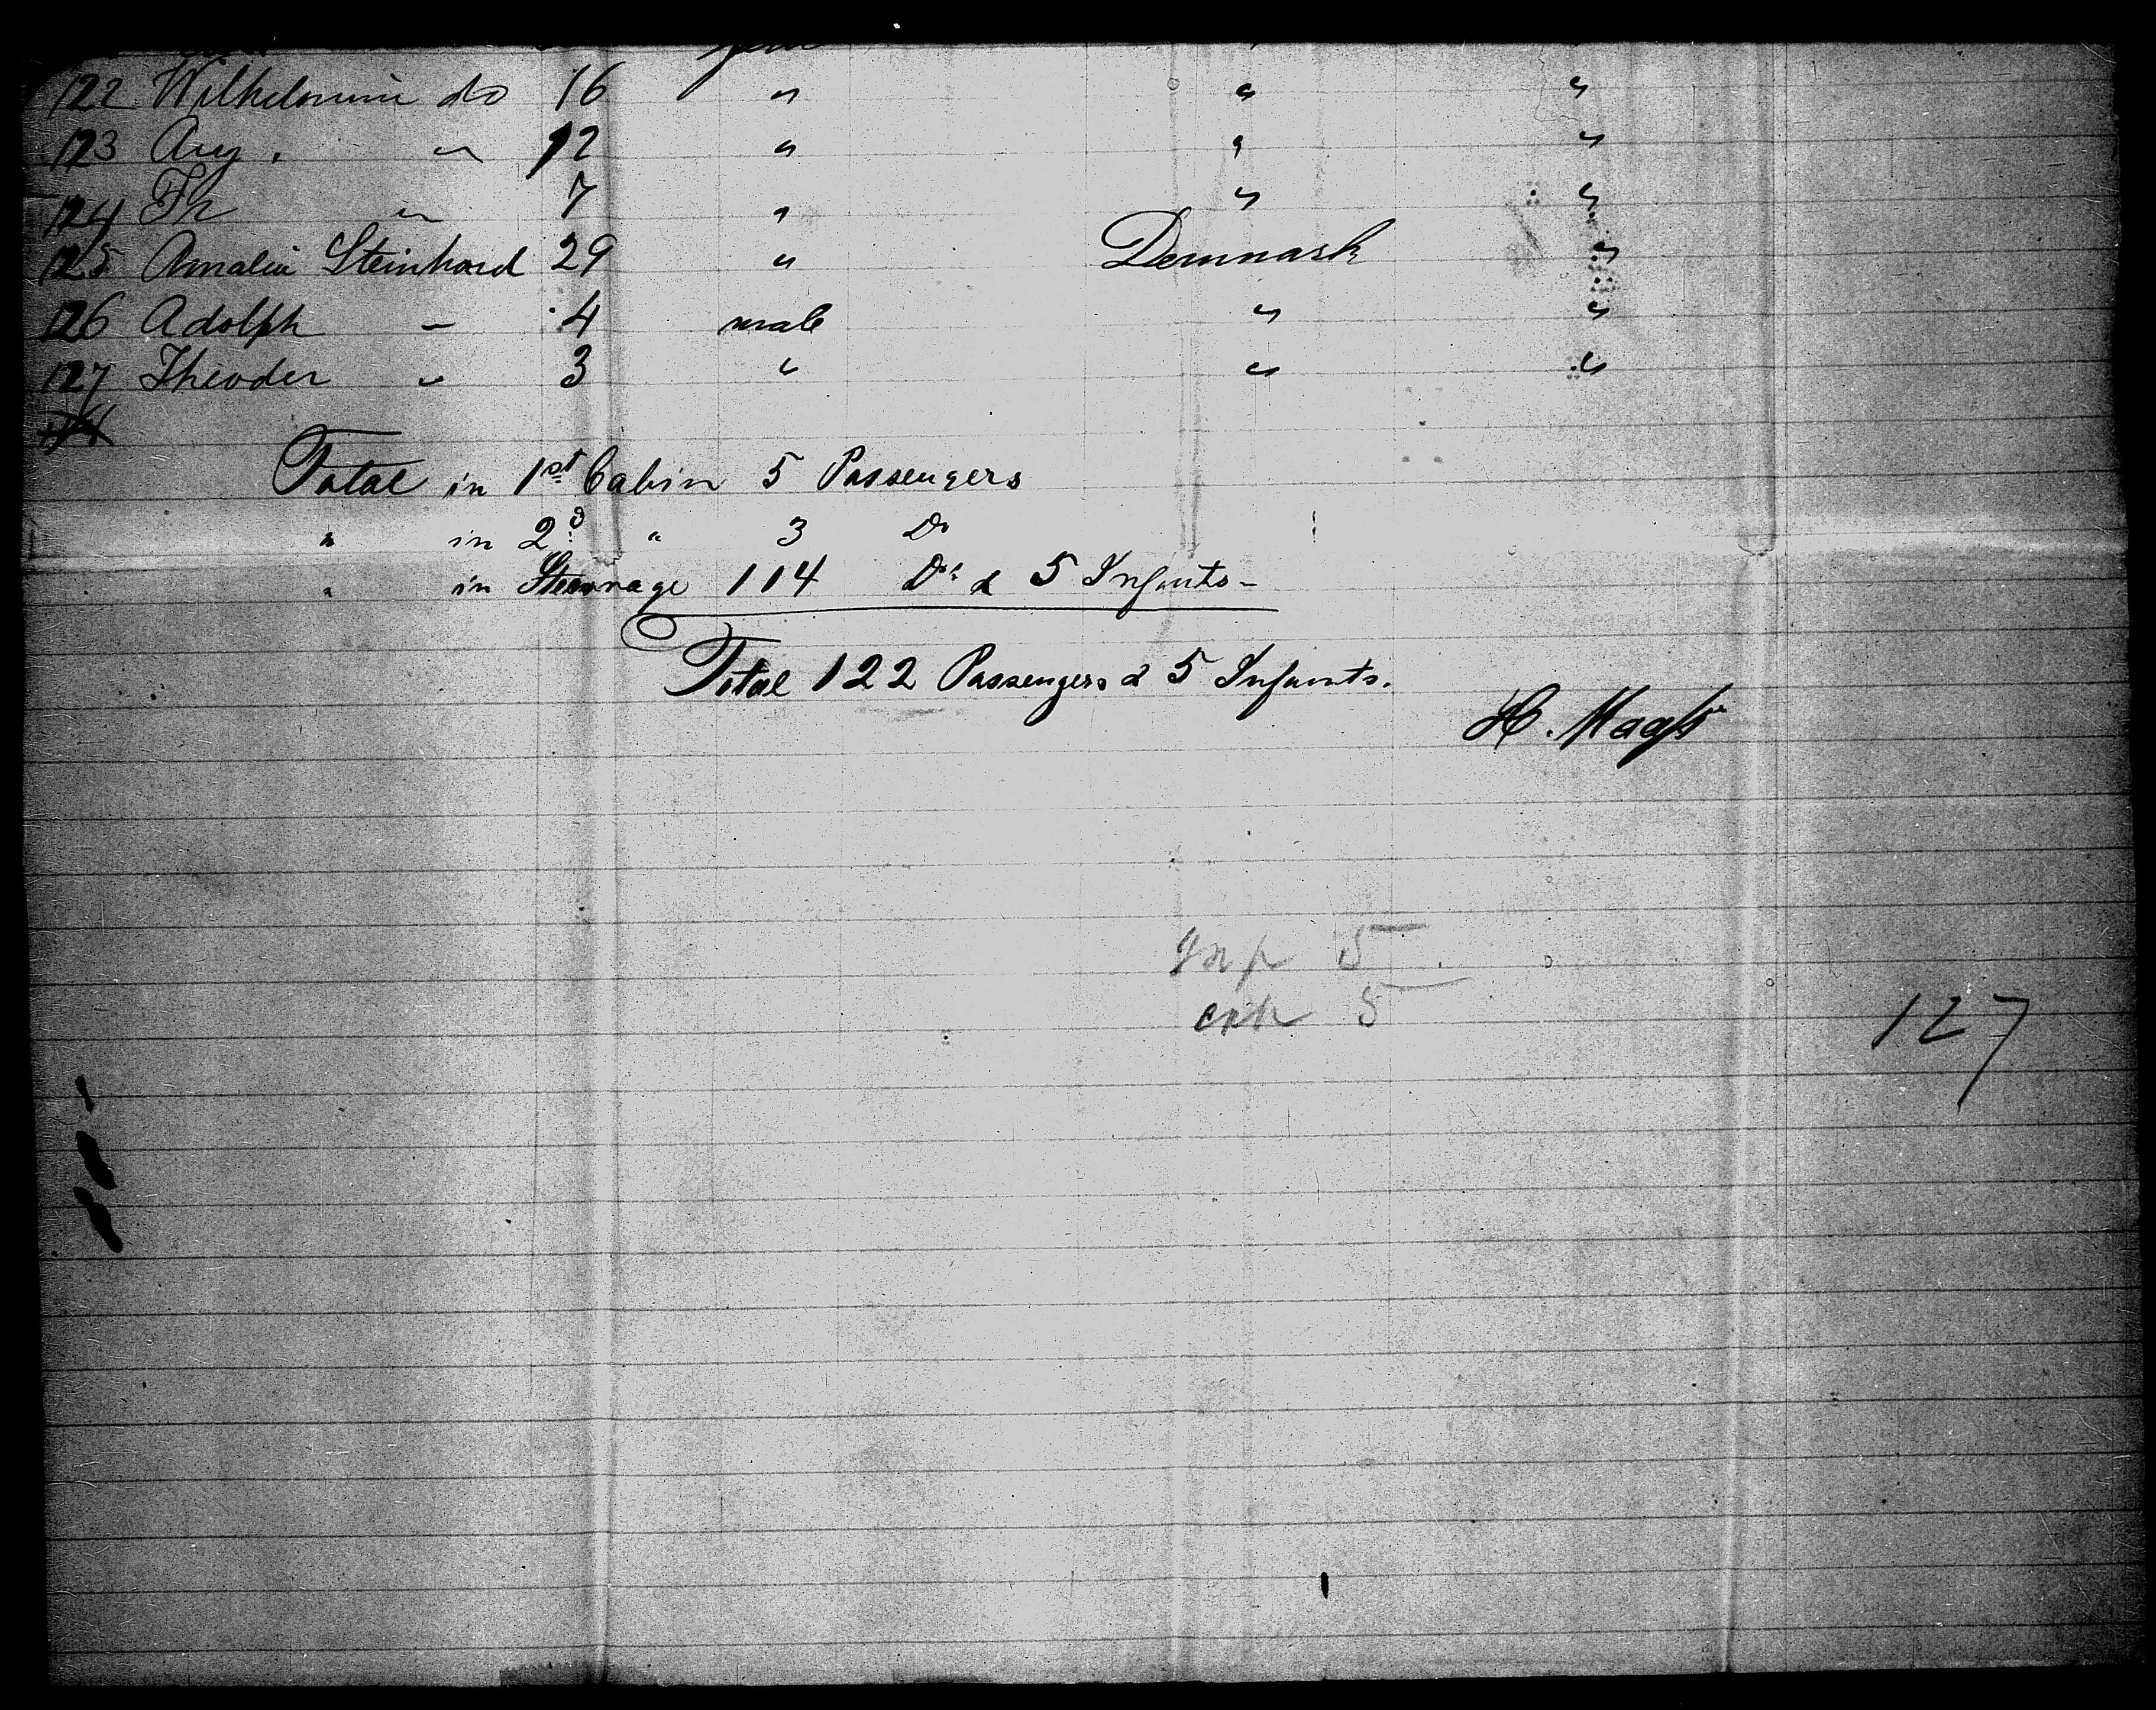 122 Wilhelmine do 16 " " "
123 Aug. " 12 " " "
124 Fr " 7 " " "
125 Amalia Steinhard 29 " Denmark "
126 Adolph " 4 male " "
127 Theoder " 3 " " "
Total in 1st Cabin 5 Passengers
" in 2d " 3 Do
" in Steerage 114 Do & 5 Infants -
Total 122 Passengers & 5 Infants.
H. Maaß
Inf 5
127